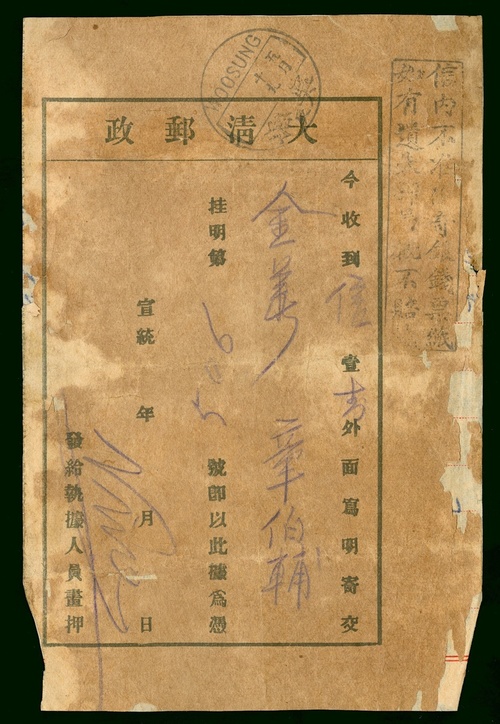 WOOSUNG
大清郵政
信內不准寄銀錢票紙
如有遺失郵局概不賠
今收到信壹封外面寫明寄交
金華 章伯輔
挂明第 號即以此據為憑
宣統 年 月 日
發給執據人員畫押